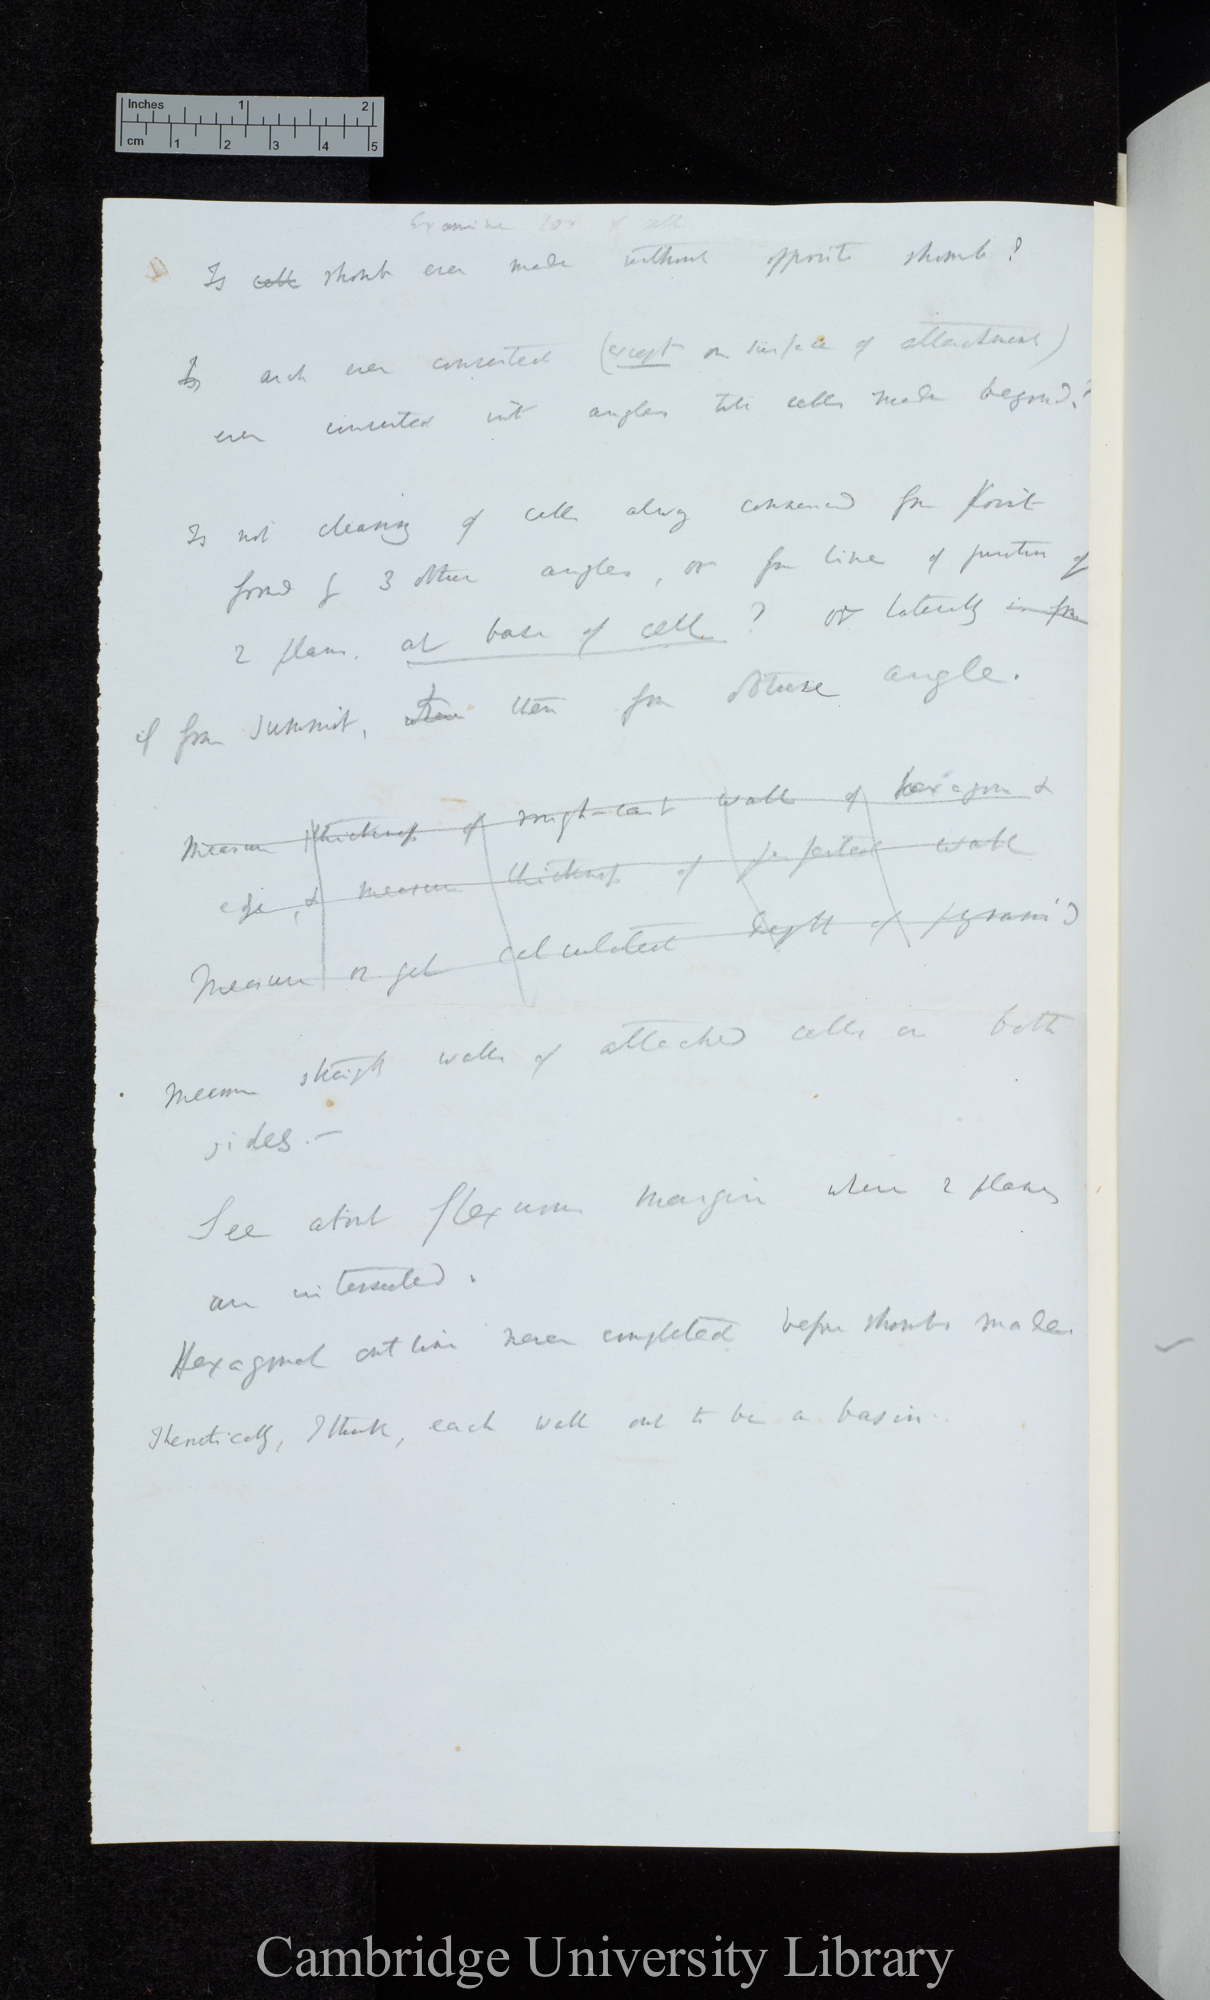 Inches 1 2
cm 1 2 3 4 5
Examine of cells
Is cells rhomb ever made without opposite rhomb?
Is arch ever converted (except on surface of attachment)
ever converted into angles till cells made beyond?
Is not clearing of cells always commenced from point
formed by 3 other angles, or from line of junction of
2 planes. at base of cell? or laterally in from
if from summit, then from obtuse angle.
Measure thickness of rough-cast wall of hexagon &
edge, & measure thickness of perfected wall
Measure or get calculated depth of pyramid
Measure straight walls of attached cells on both
sides.—
See about flexuous margin where 2 planes
are intersected.
Hexagonal outline never completed before rhombs made.
Theoretically, I think, each wall out to be a basin.
Cambridge University Library